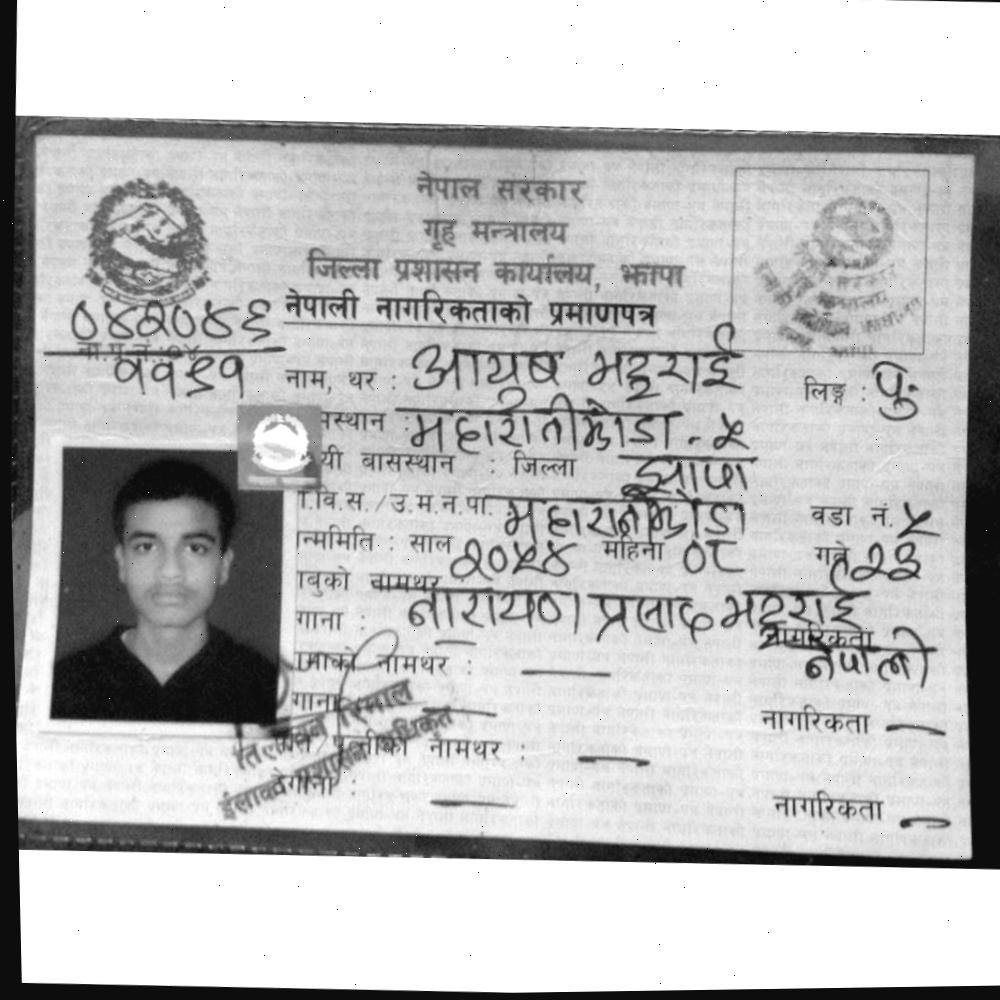 नेपाल सरकार
गृह मन्त्रालय
जिल्ला प्रशासन कार्यालय, झापा
नेपाली नागरिकताको प्रमाणपत्र
०४२०४६
११९१
नाम, थर : आयुष भट्टराई
लिङ्ग : पु.
मस्थान : महारानीझोडा - ५
यी बासस्थान : जिल्ला झापा
ा.वि.स. / उ.म.न.पा. महारानीझोडा वडा नं. ५
न्ममिति : साल २०५४ महिना ०८ गते २३
ाबुको नामथर : नारायण प्रसाद भट्टराई
गाना :
नागरिकता नेपाली
ामाको नामथर : —
गाना —
नागरिकता —
पत्नीको नामथर —
ठेगाना : —
नागरिकता —